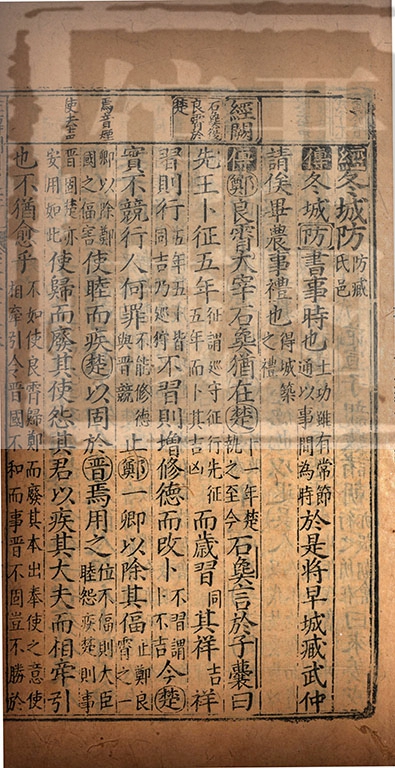 經冬城防防臧氏邑
傳冬城防書事時也土功雖有常節通以事間為時於是將早城臧武仲
請俟畢農事禮也得城築之禮
經闕
傳鄭良霄大宰石㚟猶在楚十一年楚執之至今石㚟言於子囊曰
先王卜征五年征謂巡守征行先征五年而卜其吉凶而歲習同其祥吉祥
習則行五年五卜皆同吉乃巡狩不習則增修德而改卜不習謂卜不吉今楚
實不競行人何罪不能修德與晉競止鄭一卿以除其偪止鄭良霄之一
焉音煙
卿以除鄭國之偪害使睦而疾楚以固於晉焉用之位不偪則大臣睦怨疾楚則事
使去聲
晉固楚亦安用如此使歸而廢其使怨其君以疾其大夫而相牽引
也不猶愈乎不如使良霄歸鄭而廢其本出奉使之意使相牽引今晉國不和而事晉不固豈不勝於